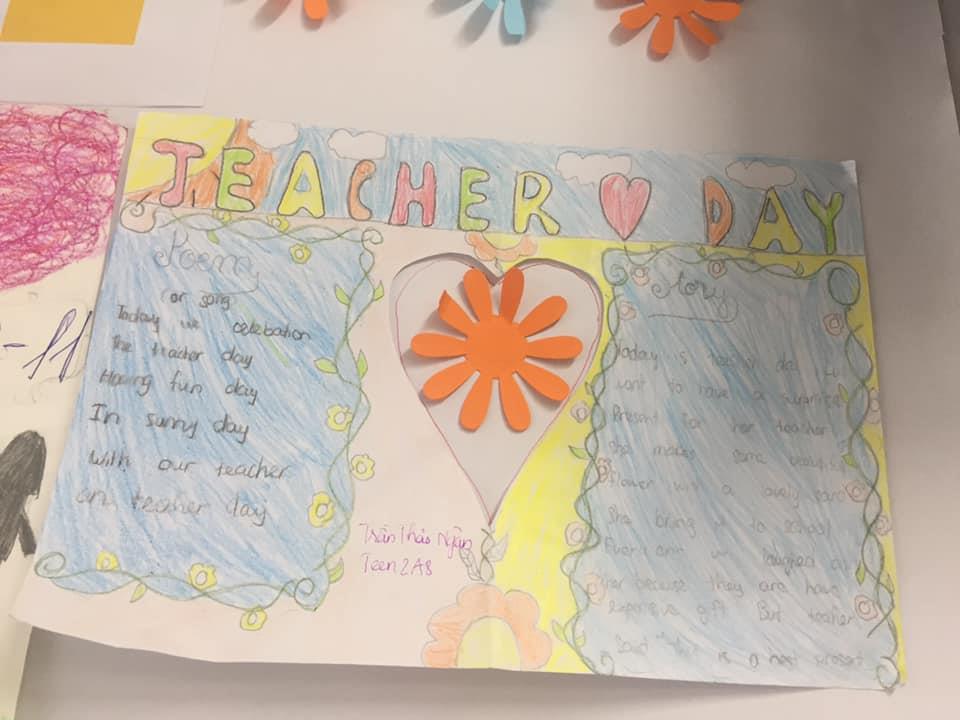 TEACHER DAY
Poem
or song
Today we celebation
the teacher day
Having fun day
In sunny day
With our teacher
on teacher day
Trần Thảo Ngân
Teen 2A8
Story
Today is day
want to have a surprise
Present for her teacher
She makes some beautiful
flower with a lovely card
She bring it to school
laughed at
her because they are have
expensive gift. But teacher
Said "this is a best present